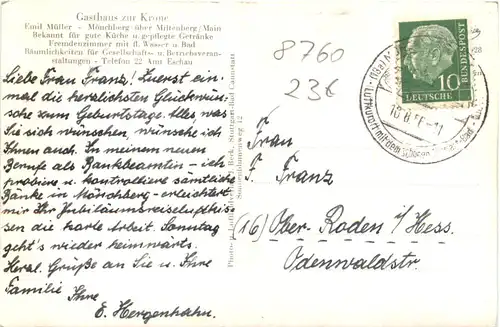 Gasthaus zur Krone
Emil Müller - Mönchberg über Miltenberg/Main
Bekannt für gute Küche u. gepflegte Getränke
Fremdenzimmer mit fl. Wasser u. Bad
Räumlichkeiten für Gesellschafts- u. Betriebsveran-
staltungen - Telefon 22 Amt Eschau
Liebe Frau Franz! Zuerst ein-
mal die herzlichsten Glückwün-
sche zum Geburtstage. Alles, was
Sie sich wünschen, wünsche ich
Ihnen auch. In meinem neuen
Berufe als Bankbeamtin - ich
probiere u. kontrolliere sämtliche
Bänke in Mönchberg - erleichtert
mir Ihr Jubiläumsreiseluftkis-
sen die harte Arbeit. Sonntag
geht's wieder heimwärts.
Herzl. Grüße an Sie u. Ihre
Familie Ihre
E. Hergenhahn.
Stuttgart-Bad Cannstatt
8760
23€
DEUTSCHE BUNDESPOST
10
Luftkurort mit dem schönen
Frau
F. Franz
(16) Ober-Roden i/Hess.
Odenwaldstr.